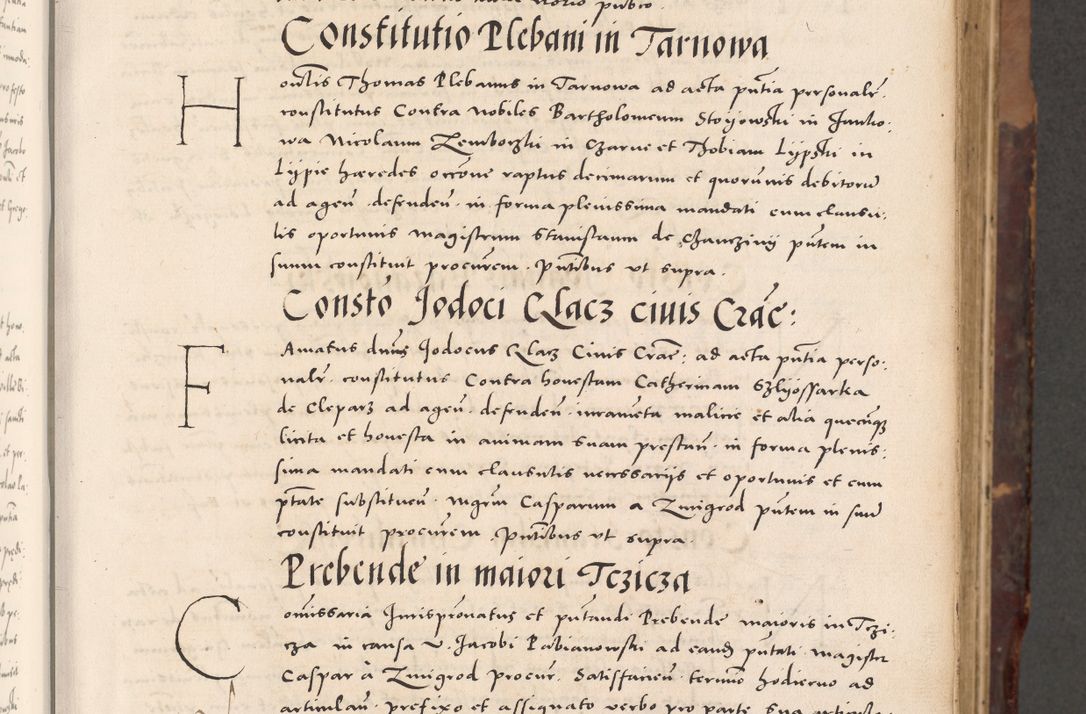 Constitutio Plebani in Tarnowa
Honorabilis Thomas Plebanus in Tarnowa ad acta pñtia personalr̃
constitutus Contra nobiles Bartholomeum Stoyowski in Janko,
wa Nicolaum Zemborzki in Czarne et Thobiam Lypski in
Lypie hæredes occõne raptus decimarum et quorumvis debitorũ
ad ageñ. defendeñ. in forma plenissima mandati cum clausu,
lis oportunis magistrum Stanislaum de Chanczini pñtem in
suum constituit procurem. Pñtibus ut supra.
Constõ Jodoci Glacz civis Crac̃:
Famatus dñus Jodocus Glacz Civis Crac̃: ad acta pñtia perso,
nalr̃. constitutus Contra honestam Catherinam Szlyossarka
de Cleparz ad ageñ. defendeñ. iuramẽta malicie et alia quecũqz
licita et honesta in animam suam prestañ. in forma plenis,
sima mandati cum clausulis necessarijs et oportunis et cum
ptãte substitueñ. mgrm̃ Casparum a Zmigrod pñtem in suũ
constituit procurem. Pñtibus ut supra
Prebende in maiori Tczicza
Comissaria Jurispr̃onatus et pñtandi Prebende maioris in Tczi,
cza in causa V. Jacobi Pabianowski ad eandẽ pñtati. magister
Caspar à Zmigrod procur. Satisfacieñ. termino hodierno ad
articulañ. prefixo et assignato verbo pro parte sua